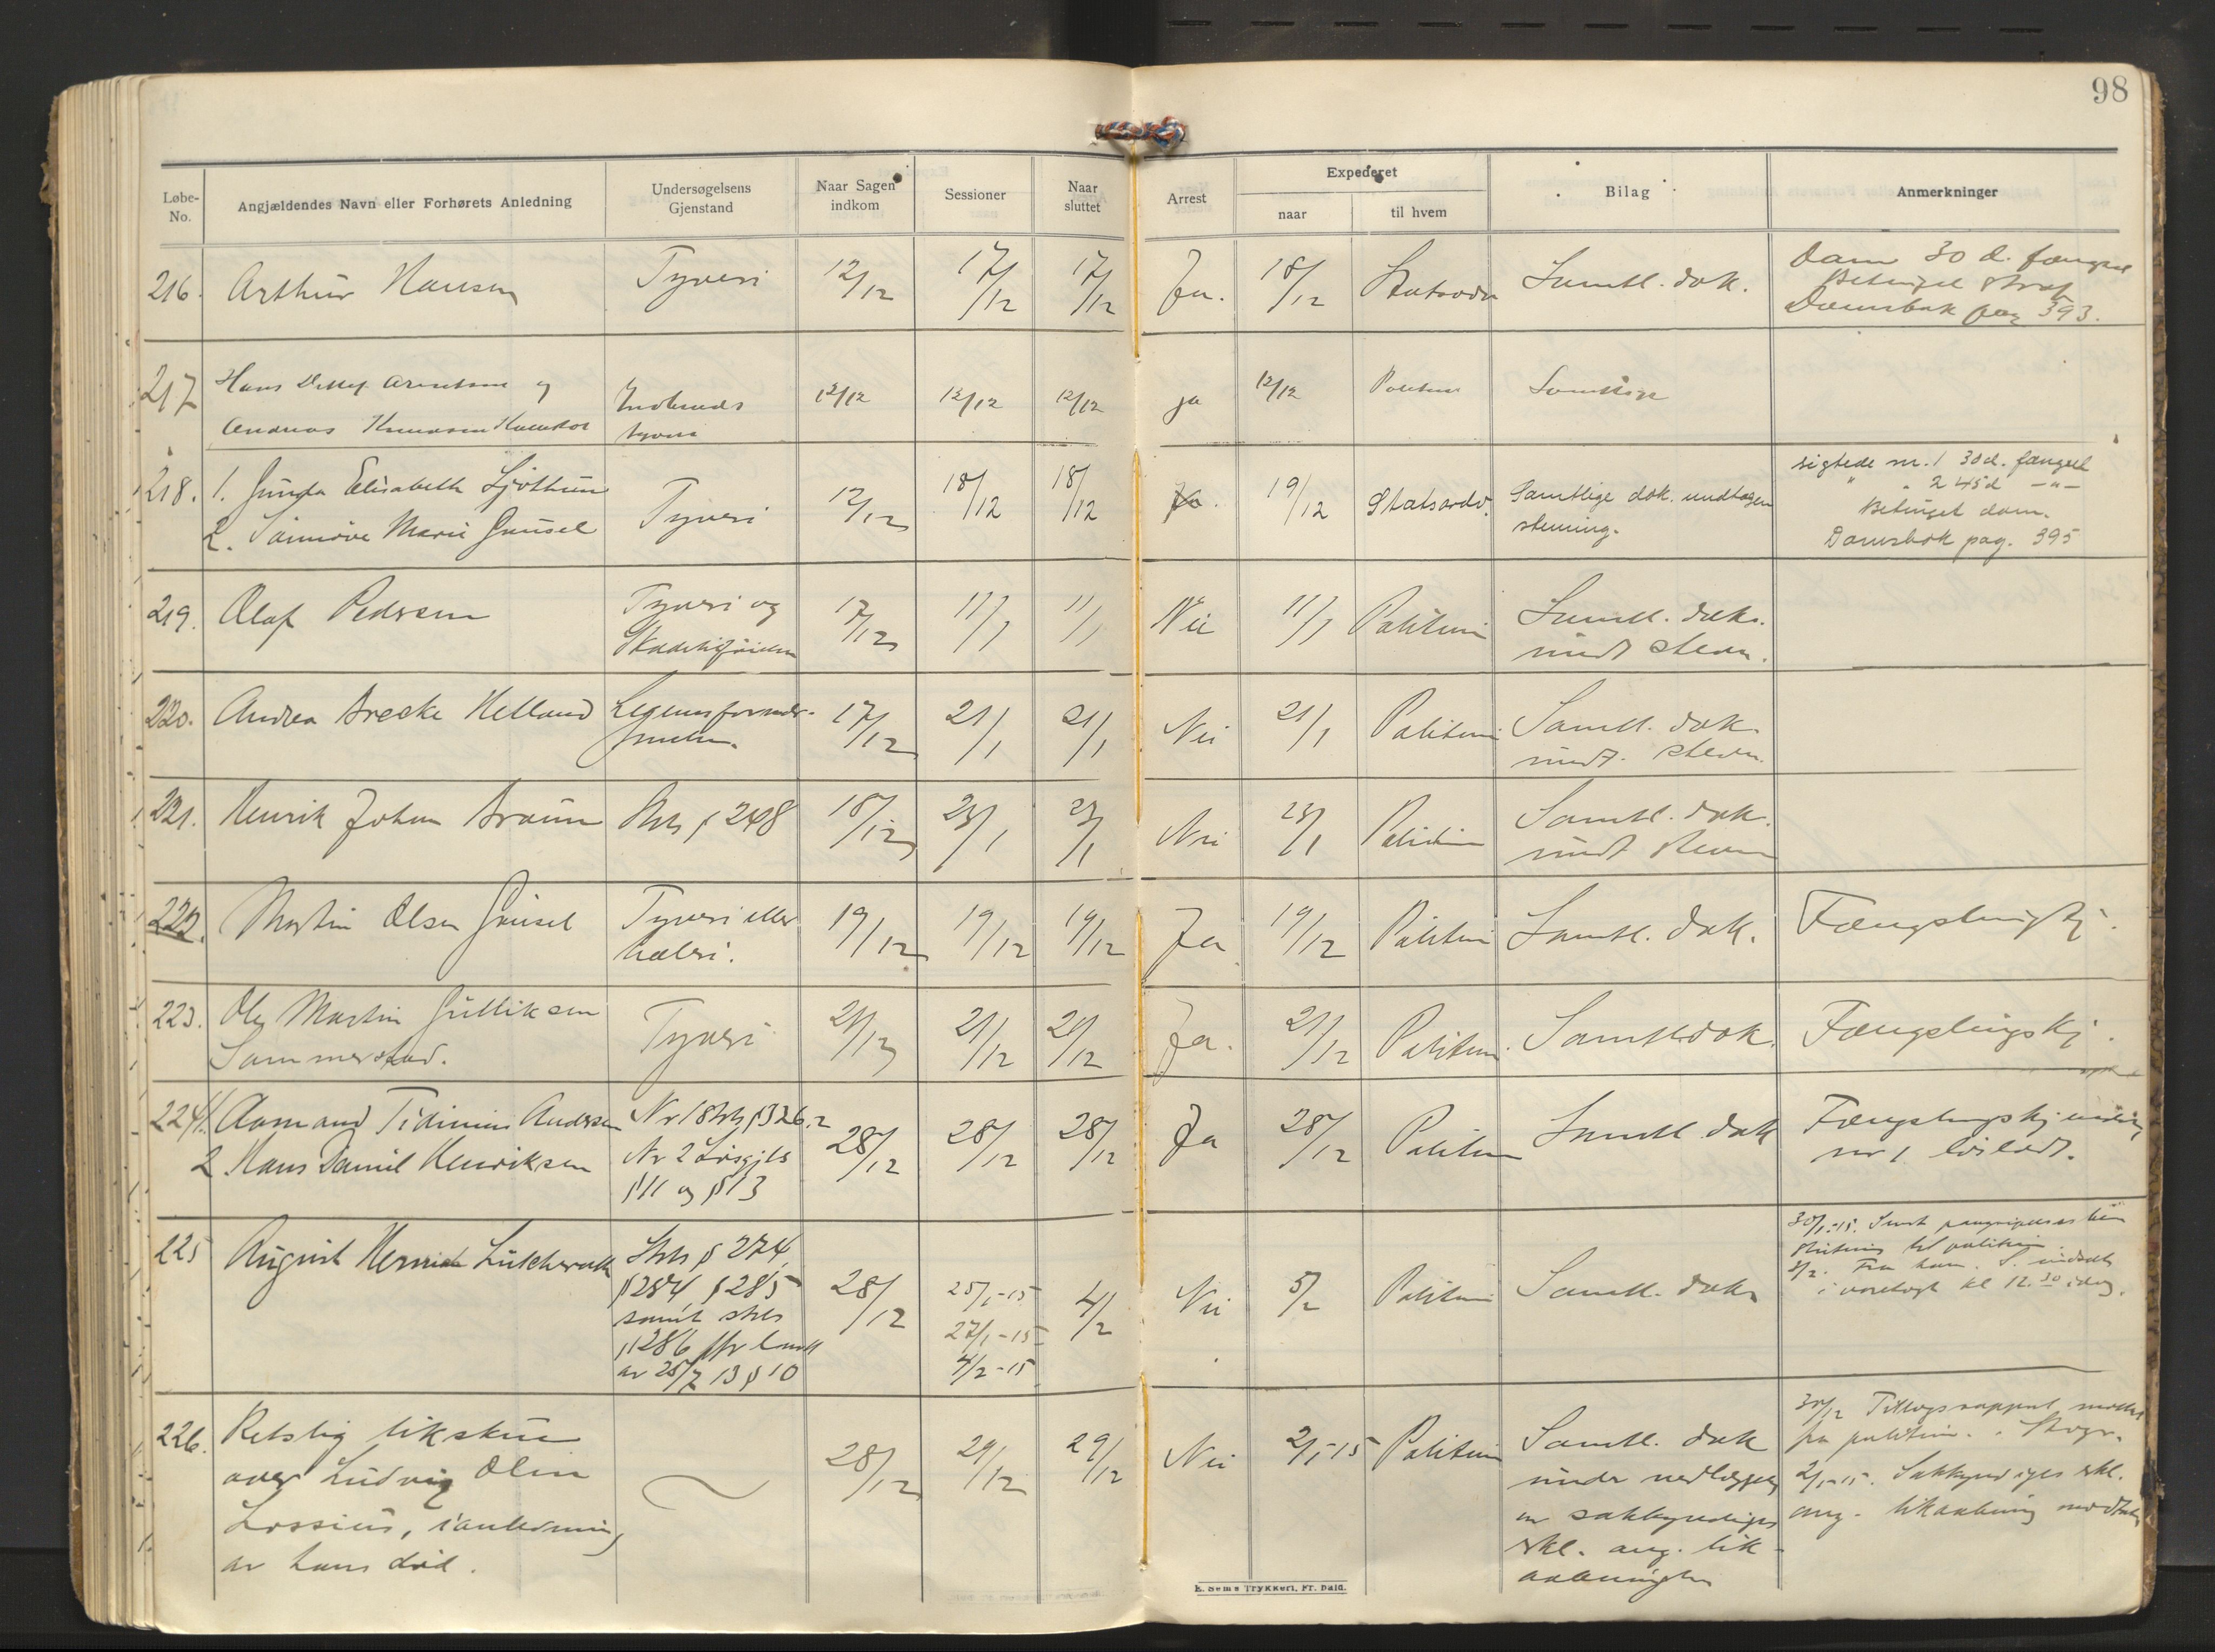 98
Løbe-No.
Angjældendes Navn eller Forhørets Anledning
Undersøgelsens Gjenstand
Naar Sagen indkom
Sessioner
Naar sluttet
Arrest
Expederet
naar
til hvem
Bilag
Anmerkninger
216. Arthur Hansen Tyveri 12/12 17/12 17/12 Ja. 18/12 Statsadv Samtl. dok. Dom 30 d. fængsel
Betinget Straf
Domsbok pag 393.
217 Hans Detlef Arentsen og
Andreas Knudsen
Indbruds
tyveri
12/12 12/12 12/12 ja 12/12 Politiet Samtlige
218. 1. Gunda Elisabeth Sjøthun
2. Marie Gausel
Tyveri 12/12 18/12 18/12 Ja. 19/12 Statsadv. Samtlige dok. undtagen
stevning.
sigtede nr. 1 30 d. fængsel
" " 2 45 d —"—
Betinget dom.
Domsbok pag. 395
219. Olaf Pedersen Tyveri og
17/12 11/1 11/1 Nei 11/1 Politiet Samtl. dok.
undt stevn.
220. Andrea Brecke Helland Legemsfornær-
melse.
17/12 21/1 21/1 Nei 21/1 Politiet Samtl. dok.
undt. stevn.
221. Henrik Johan Braun Strls § 248 18/12 23/1 23/1 Nei 23/1 Politiet Samtl. dok.
undt stevn
222. Martin Olsen Gausel Tyveri eller
hæleri.
19/12 19/12 19/12 Ja 19/12 Politiet Samtl. dok. Fængslingskj.
223. Ole Martin Gulliksen
Sammerstad.
Tyveri 21/12 21/12 21/12 Ja. 21/12 Politiet Samtl dok. Fængslingskj.
224 1. Andersen
2 Hans Daniel Henriksen
Nr 1 Strls § 326.2
Nr 2 Løsgjls
§ 11 og § 13
28/12 28/12 28/12 Ja 28/12 Politiet Samtl dok Fængslingskj
nr 1. løsladt.
225 August
Strls § 274,
§ 284 § 285
samt strls
§ 286 jfr
av 25/7 13 § 10
28/12 25/1-15
27/1-15
4/2-15
4/2 Nei 5/2 Politiet Samtl. dok
30/1-15. Sendt
til politiet.
i kl 12.30 idag.
226. Retslig likskue
over Ludvig Olin
Lossius, i anledning
av hans død.
28/12 29/12 29/12 Nei 2/1-15 Politiet Samtl. dok
under nedlæggelse
av sakkyndiges
erkl. ang. lik-
aabningen
30/12 Tillægsrapport
fra politiet.
2/1-15. Sakkyndiges erkl.
ang. likaabning
E. Sems Trykkeri, Fr. hald.